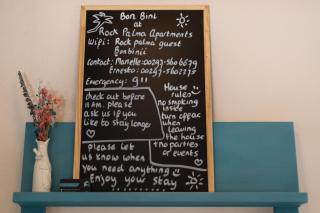 Bon Bini
at
Rock Palma Apartments
Wifi: Rock palma guest
Bonbini!
Contact: Marielle: 00297-5606679
Ernesto: 00297-5602275
Emergency: 911
check out before
11 AM. please
ask us if you
like to stay longer
House
rules
no smoking
inside
turn off ac
when
leaving
the house
no parties
or events
please let
us know when
you need anything
Enjoy your stay